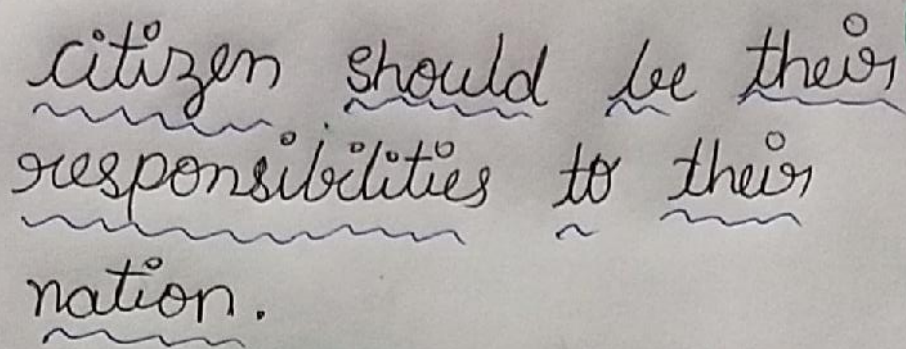 citizen should be their
responsibilities to their
nation.